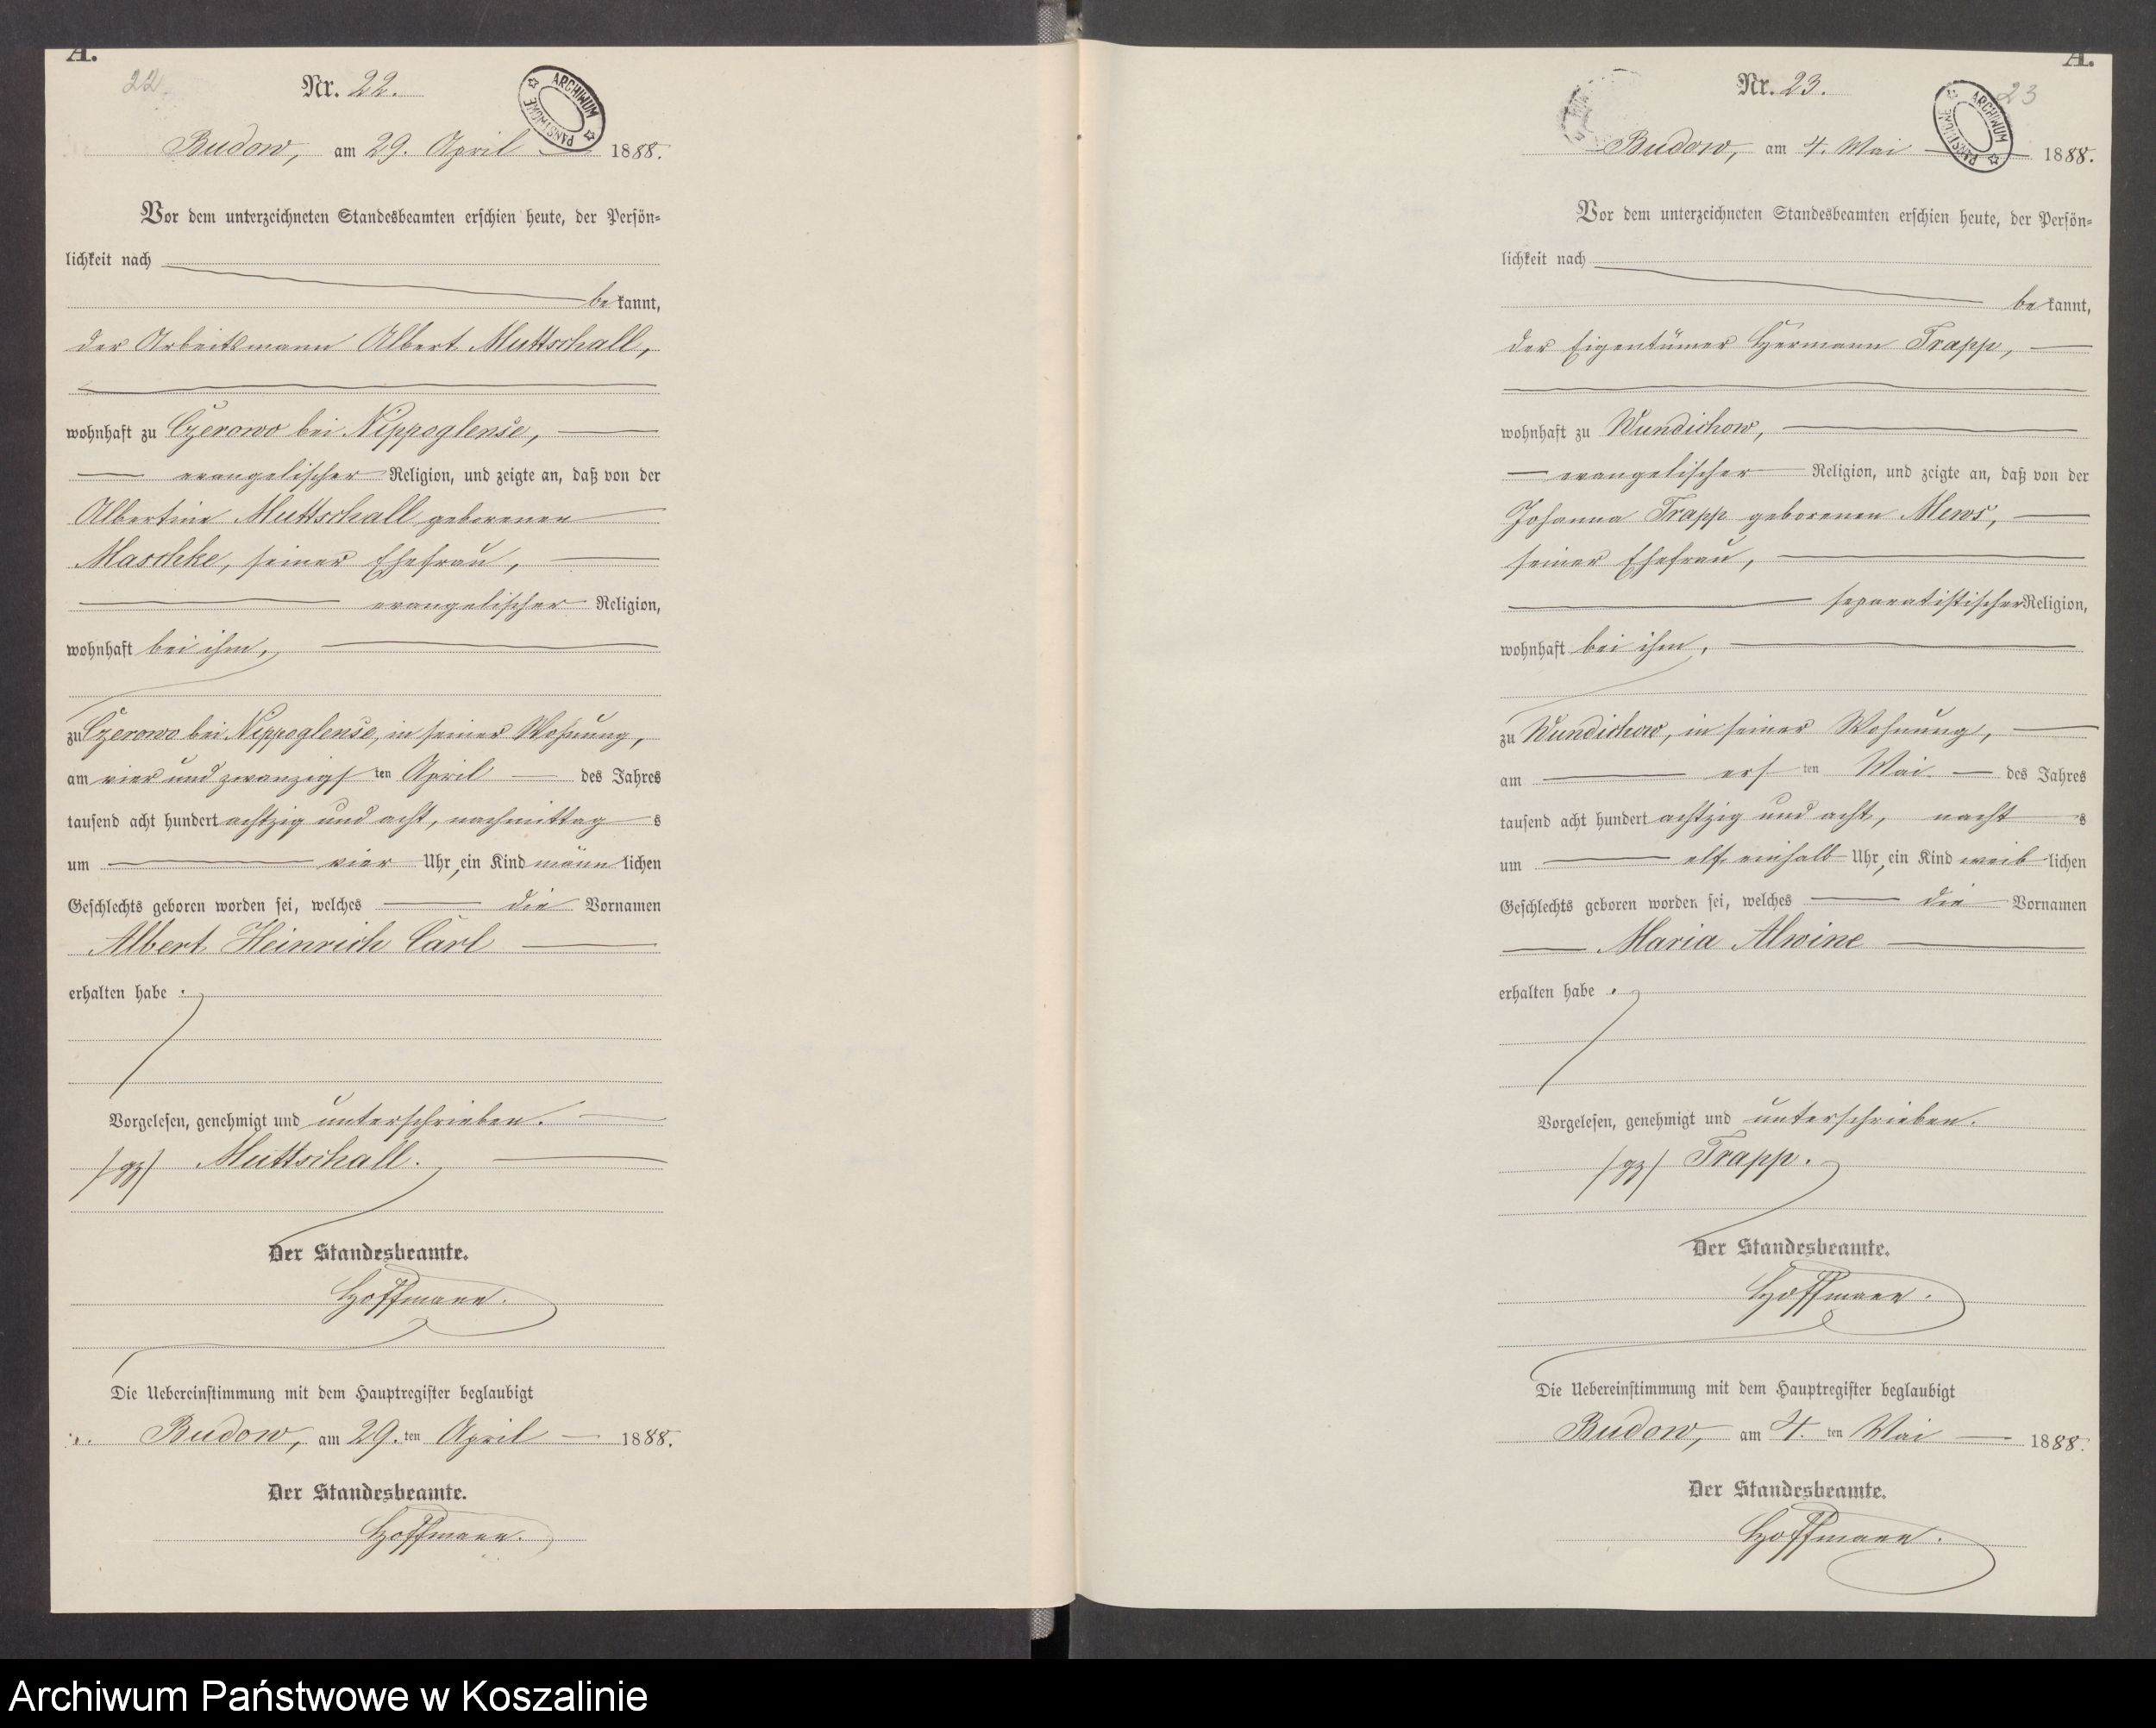 A.
22
Nr. 22.
ARCHIWUM PAŃSTWOWE
Budow, am 29. April 1888.
Vor dem unterzeichneten Standesbeamten erschien heute, der Persön-
lichkeit nach
bekannt,
der Arbeitsmann Albert Muttschall,
wohnhaft zu Czerowo bei Nippoglense,
evangelischer Religion, und zeigte an, daß von der
Albertine Muttschall geborenen
Maschke, seiner Ehefrau,
evangelischer Religion,
wohnhaft bei ihm,
zu Czerowo bei Nippoglense, in seiner Wohnung,
am vier und zwanzigsten April des Jahres
tausend acht hundert achtzig und acht, nachmittags
um vier Uhr, ein Kind männlichen
Geschlechts geboren worden sei, welches die Vornamen
Albert Heinrich Carl
erhalten habe.
Vorgelesen, genehmigt und unterschrieben.
/gz/ Muttschall.
Der Standesbeamte.
Hoffmann.
Die Uebereinstimmung mit dem Hauptregister beglaubigt
Budow, am 29.ten April 1888.
Der Standesbeamte.
Hoffmann.
A.
23
Nr. 23.
ARCHIWUM PAŃSTWOWE
Budow, am 4. Mai 1888.
Vor dem unterzeichneten Standesbeamten erschien heute, der Persön-
lichkeit nach
bekannt,
der Eigentümer Hermann Trapp,
wohnhaft zu Wundichow,
evangelischer Religion, und zeigte an, daß von der
Johanna Trapp geborenen Mews,
seiner Ehefrau,
separatistischer Religion,
wohnhaft bei ihm,
zu Wundichow, in seiner Wohnung,
am ersten Mai des Jahres
tausend acht hundert achtzig und acht, nachts
um elf einhalb Uhr, ein Kind weiblichen
Geschlechts geboren worden sei, welches die Vornamen
Maria Alwine
erhalten habe.
Vorgelesen, genehmigt und unterschrieben.
/gz/ Trapp.
Der Standesbeamte.
Hoffmann.
Die Uebereinstimmung mit dem Hauptregister beglaubigt
Budow, am 4.ten Mai 1888.
Der Standesbeamte.
Hoffmann.
Archiwum Państwowe w Koszalinie